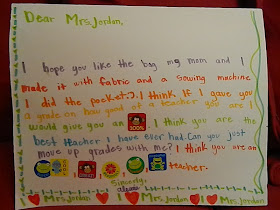 Dear Mrs. Jordan,
hope you like the bag my mom and I
made it with fabric and a sewing machine.
I did the pocket:). I think If I gave you
a grade on how good of a teacher you are I
would give you an 100%. I think you are the
best teacher I have ever had. Can you just
move up grades with me? I think you are an
teacher.
Sincerely,
I Mrs. Jordan I Mrs. Jordan I Mrs. Jordan